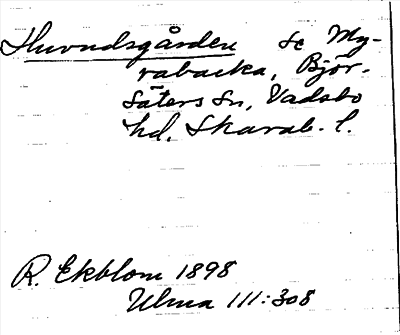 Huvudsgården se My-
rabacka, Björ-
säters sn, Vadsbo
hd, Skarab. l.
R. Ekblom 1898
Ulma 111:308